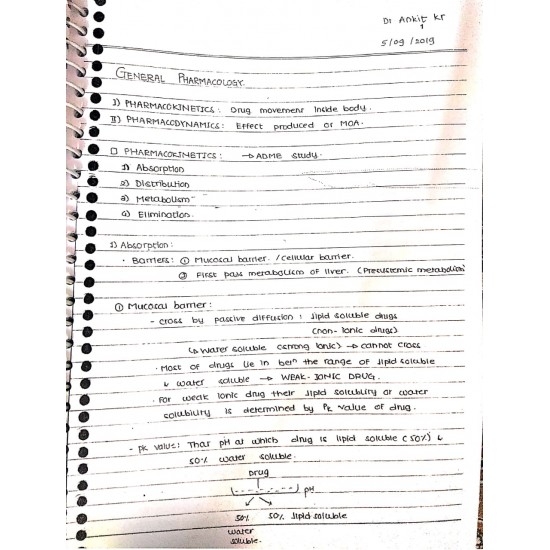 Dr Ankit Kr
5/09/2019
GENERAL PHARMACOLOGY
I) PHARMACOKINETICS: Drug movement inside body.
II) PHARMACODYNAMICS: Effect produced or MOA.
□ PHARMACOKINETICS: → ADME study.
1) Absorption
2) Distribution
3) Metabolism
4) Elimination.
1) Absorption:
• Barriers: ① Mucosal barrier. /cellular barrier.
② First pass metabolism of liver. (Presystemic metabolism)
① Mucosal barrier:
- cross by passive diffusion: lipid soluble drugs
(non-ionic drugs)
↳ Water soluble (strong ionic) → cannot cross
• Most of drugs lie in betn the range of lipid soluble
& water soluble → WEAK-IONIC DRUG.
• For weak ionic drug their lipid solubility or water
solubility is determined by Pk value of drug.
- pk value: That pH at which drug is lipid soluble (50%) &
50% water soluble.
Drug
pH
50% 50% lipid soluble
water
soluble.